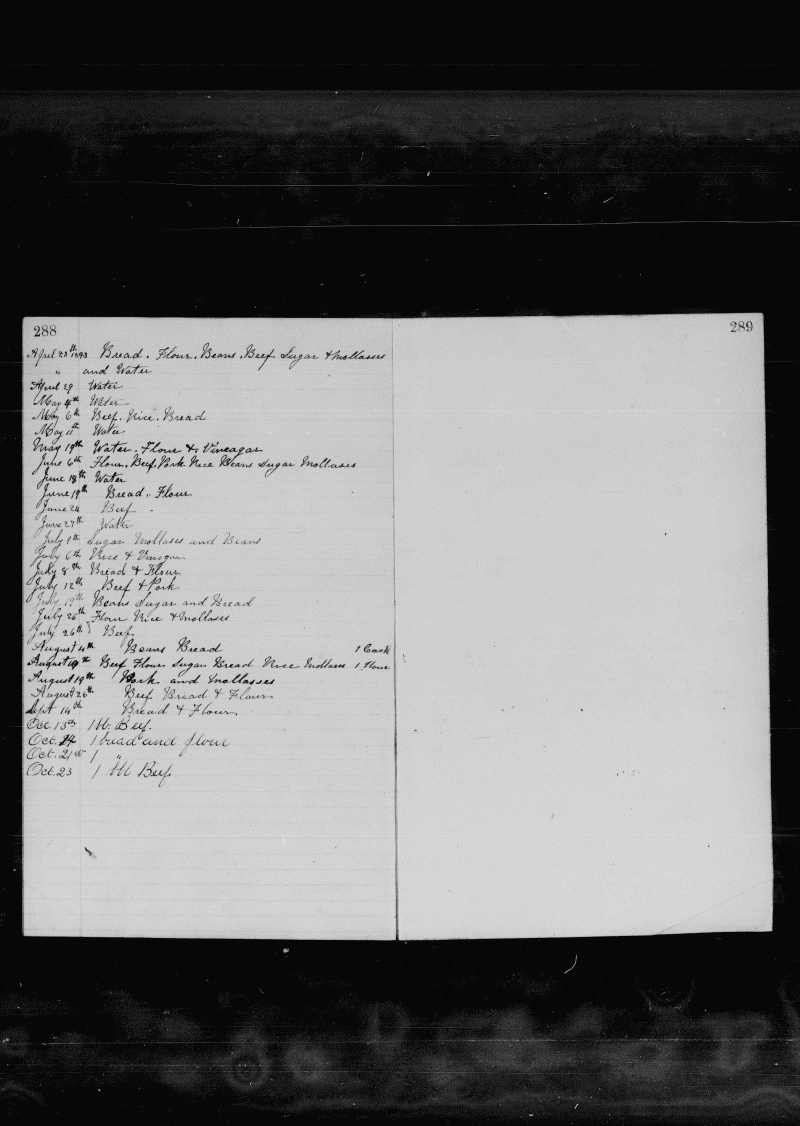 288
April 23th 1893 Bread. Flour. Beans. Beef Sugar & Mollasses
" and Water
April 29 Water
May 4th Water
May 6th Beef. Rice. Bread
May 11th Water
May 19th Water. Flour & Vineagar
June 6th Flour. Beef. Pork Rice Beans Sugar Mollases
June 18th Water
June 19th Bread. Flour
June 24 Beef
June 27th Water
July 1th Sugar Mollases and Beans
July 6th Rice & Vinegar
July 8th Bread & Flour
July 12th Beef & Pork
July 19th Beans Sugar and Bread
July 25th Flour Rice & Mollases
July 26th Beef
August 4th Beans Bread 1 Cask
August 19th Beef Flour Sugar Bread Rice Mollases 1 Flour
August 19th Pork and Mollasses
August 26th Beef Bread & Flour
Sept 14th Bread & Flour
Oct. 13th 1 bb. Beef.
Oct. 14 1 bread and flour
Oct. 21st 1 "
Oct. 23 1 bbl Beef
289